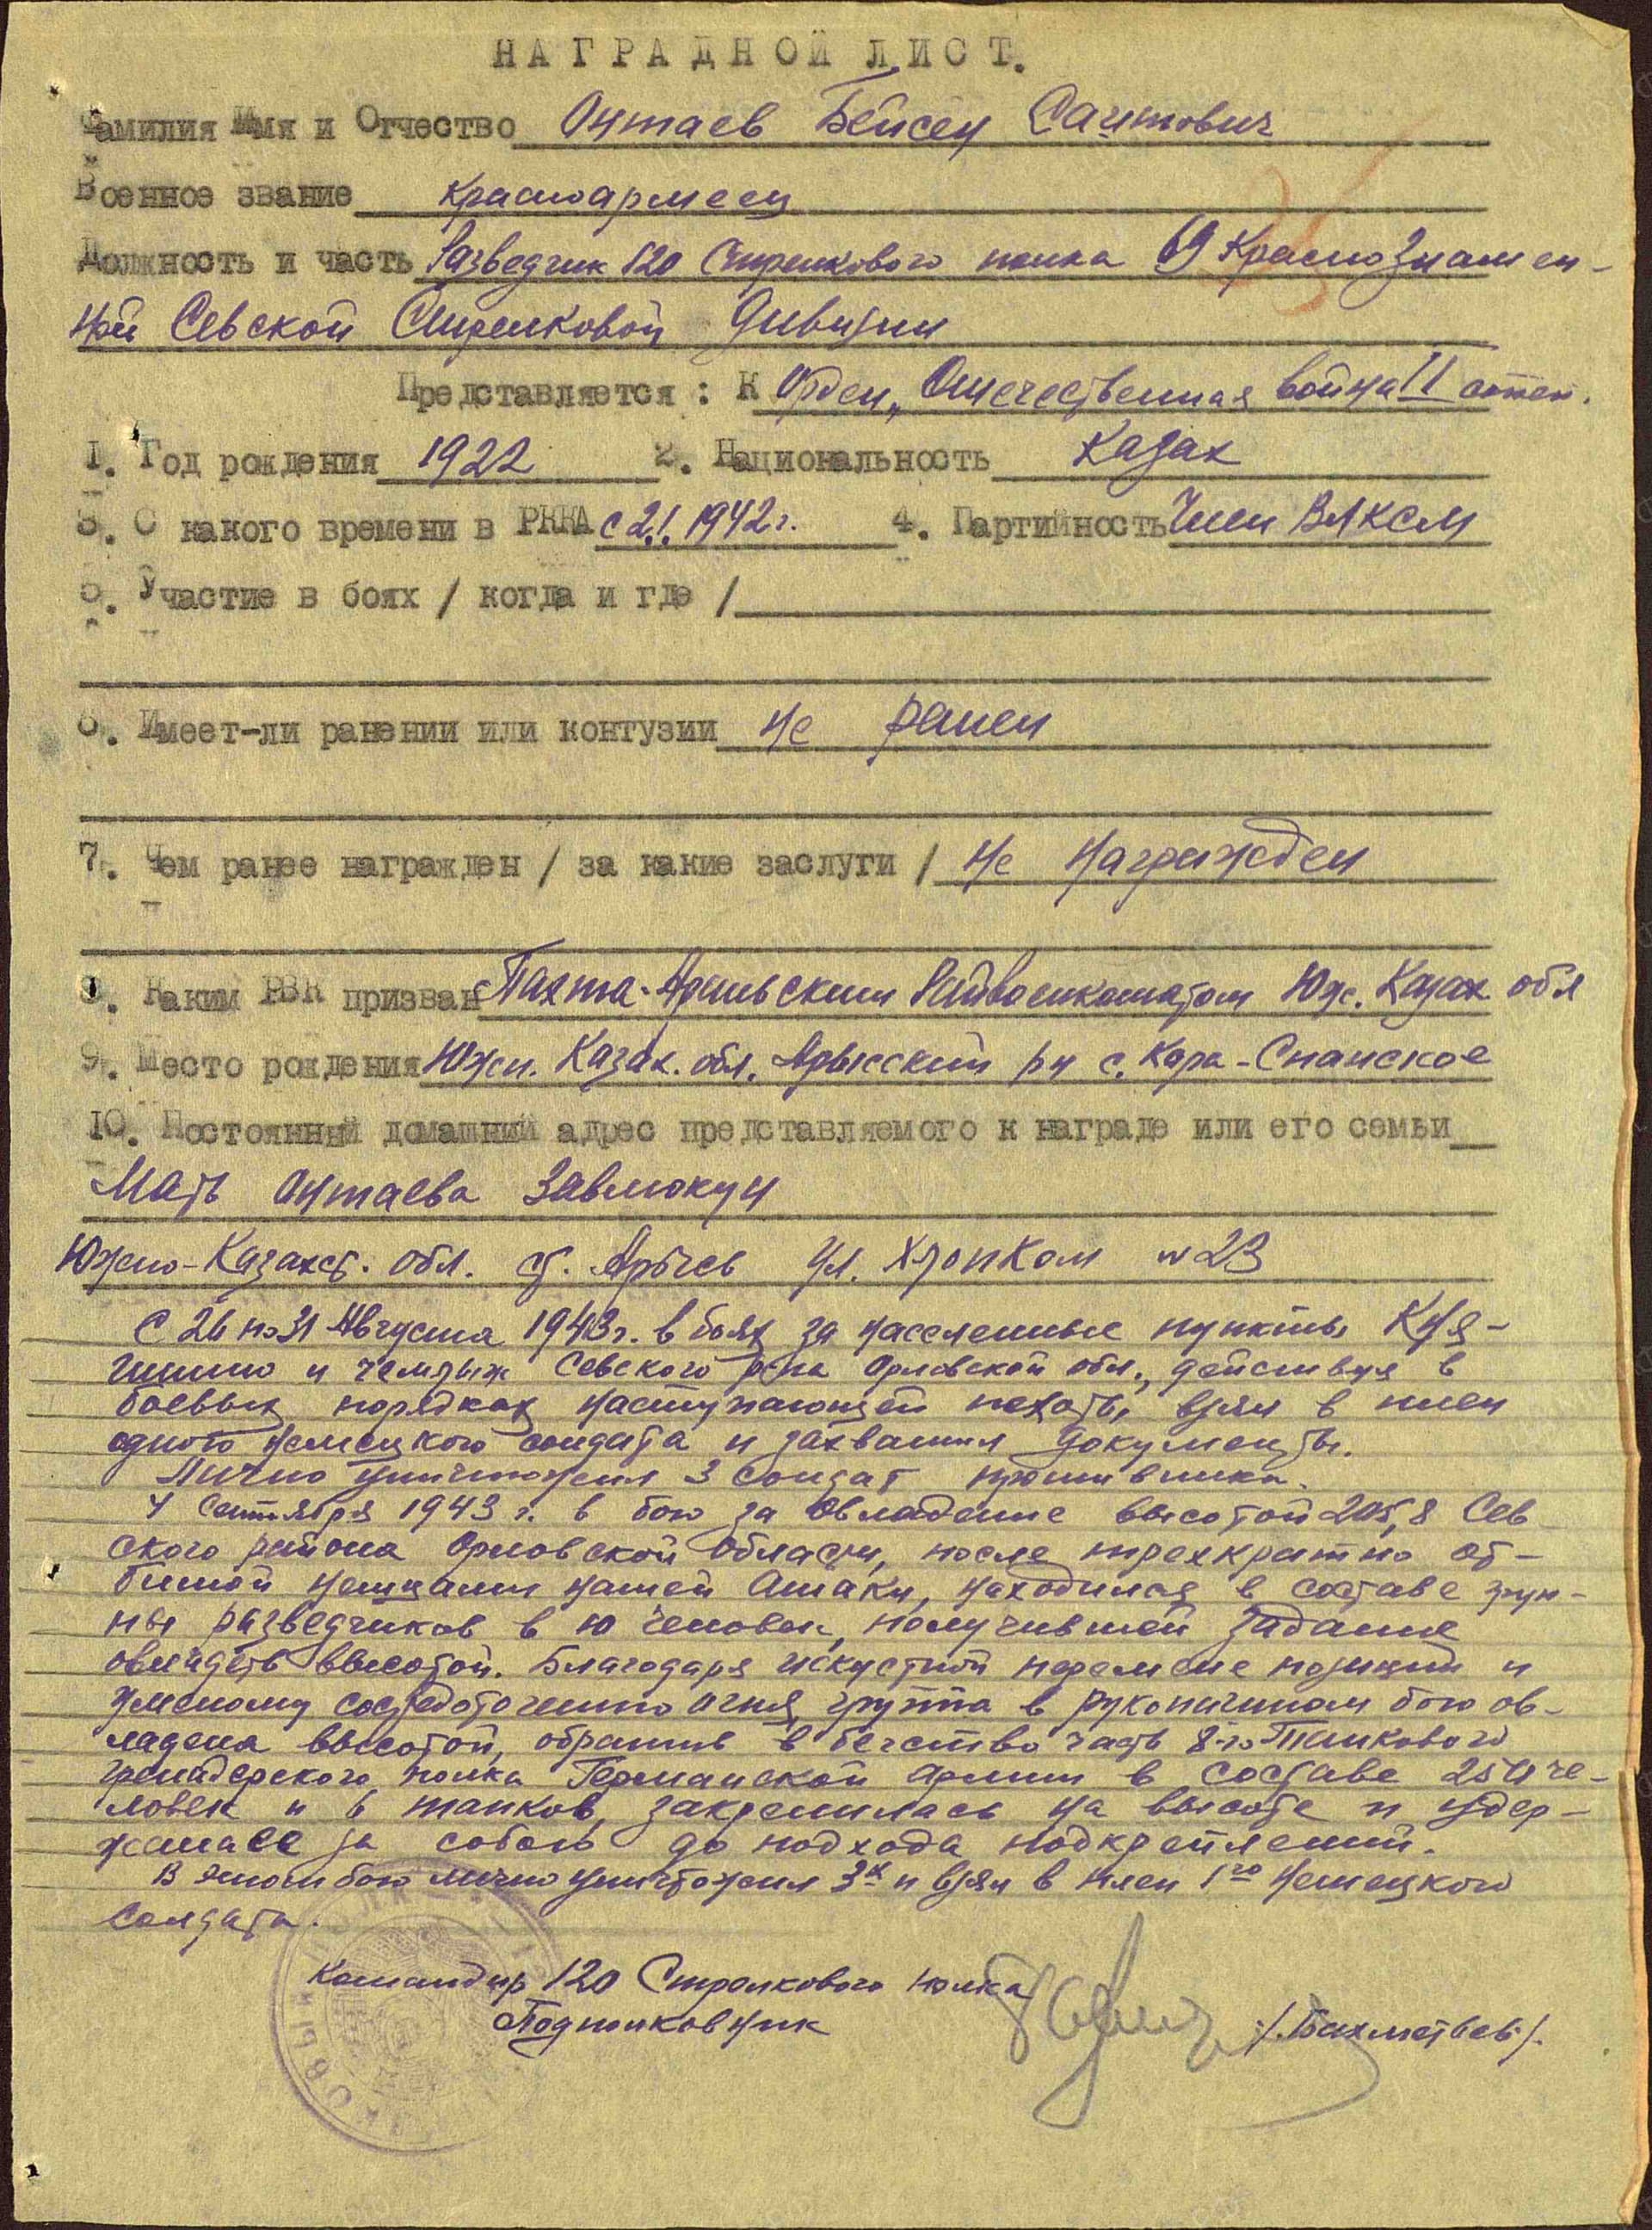 НАГРАДНОЙ ЛИСТ.
Фамилия Имя и Отчество Онтаев Бейсен Саитович
Военное звание красноармеец
Должность и часть Разведчик 120 Стрелкового полка 69 Краснознамен-
ной Севской Стрелковой дивизии
Представляется: К Орден „Отечественная война II степ.
1. Год рождения 1922 2. Национальность Казах
3. С какого времени в РККА с 2.I.1942г. 4. Партийность Член ВЛКСМ
5. Участие в боях / когда и где /
6. Имеет-ли ранении или контузии не ранен
7. Чем ранее награжден / за какие заслуги / не награжден
8. Каким РВК призван Пахта-Аральским Райвоенкоматом Юж. Казах обл
9. Место рождения Южн. Казах. обл. Арысский рн с. Кара-Спанское
10. Постоянный домашний адрес представляемого к награде или его семьи
Мать Онтаева
Южно-Казахст. обл. ст. Арысь ул. Хлопком № 23
С 26 по 31 Августа 1943г. в боях за населенные пункты Кня-
гинино и Чемлыж Севского р-на Орловской обл., действуя в
боевых порядках наступающей пехоты взял в плен
одного немецкого солдата и захватил документы.
Лично уничтожил 3 солдат противника.
4 Сентября 1943 г. в бою за овладение высотой 205,8 Сев-
ского района Орловской области, после трехкратно от-
битой немцами нашей Атаки, находился в составе груп-
пы разведчиков в 10 человек, получившей задание
овладеть высотой. Благодаря искустной перемене позиций и
умелому сосредоточению огня, группа в рукопашном бою ов-
ладела высотой, обратив в бегство часть 8-го Танкового
гренадерского полка Германской армии в составе 250 че-
ловек и 6 танков, закрепилась на высоте и удер-
жала ее за собою до подхода подкреплений.
В этом бою лично уничтожил 3х и взял в плен 1го немецкого
солдата.
Командир 120 Стрелкового полка
Подполковник /Бахметьев/.